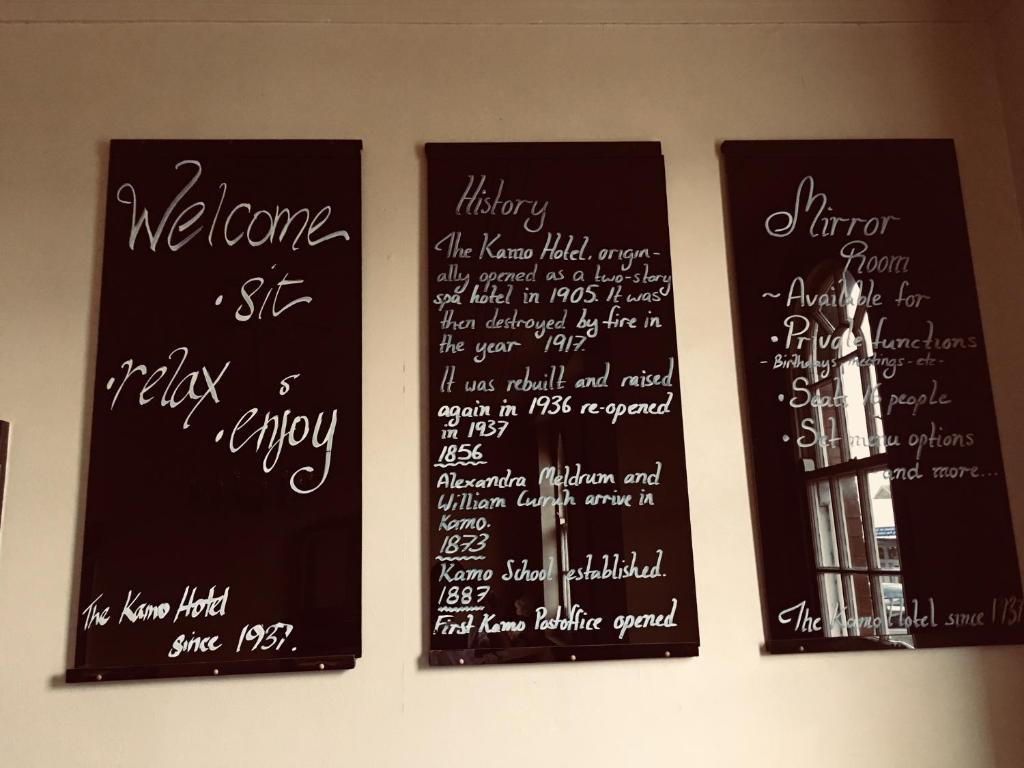 Welcome
• sit
• relax
&
• enjoy
The Kamo Hotel
since 1937.
History
The Kamo Hotel, origin-
ally opened as a two-story
spa hotel in 1905. It was
then destroyed by fire in
the year 1917.
It was rebuilt and raised
again in 1936 re-opened
in 1937
1856
Alexandra Meldrum and
William Curruh arrive in
Kamo.
1873
Kamo School established.
1887
First Kamo Postoffice opened
Mirror
Room
~ Available for
• Private functions
- Birthdays - meetings - etc -
• Seats 16 people
• Set menu options
and more...
The Kamo Hotel since 1937